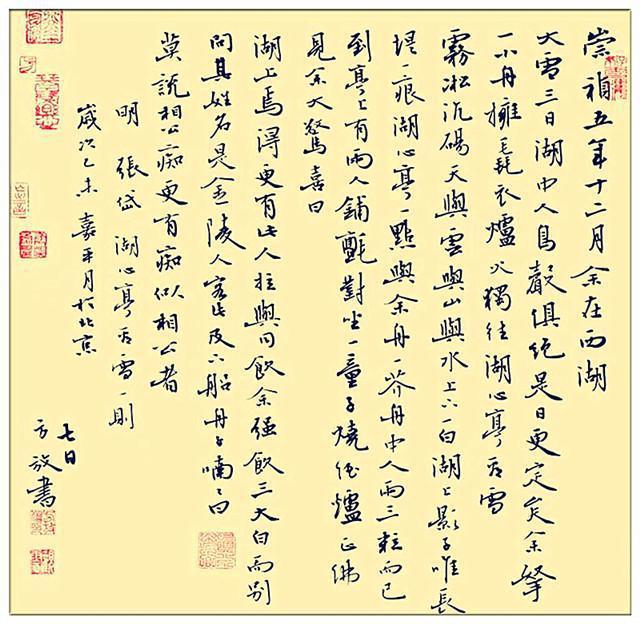 崇禎五年十二月余在西湖
大雪三日湖中人鳥聲俱絕是日更定矣余拏
一小舟擁毳衣爐火獨往湖心亭看雪
霧凇沆碭天與雲與山與水上下一白湖上影子唯長
堤一痕湖心亭一點與余舟一芥舟中人兩三粒而已
到亭上有兩人鋪氈對坐一童子燒酒爐正沸
見余大驚喜曰
湖上焉得更有此人拉與同飲余強飲三大白而別
問其姓名是金陵人客此及下船舟子喃々曰
莫說相公痴更有痴似相公者
明 張岱 湖心亭看雪一則
歲次乙未嘉平月於北京
七日
方放書